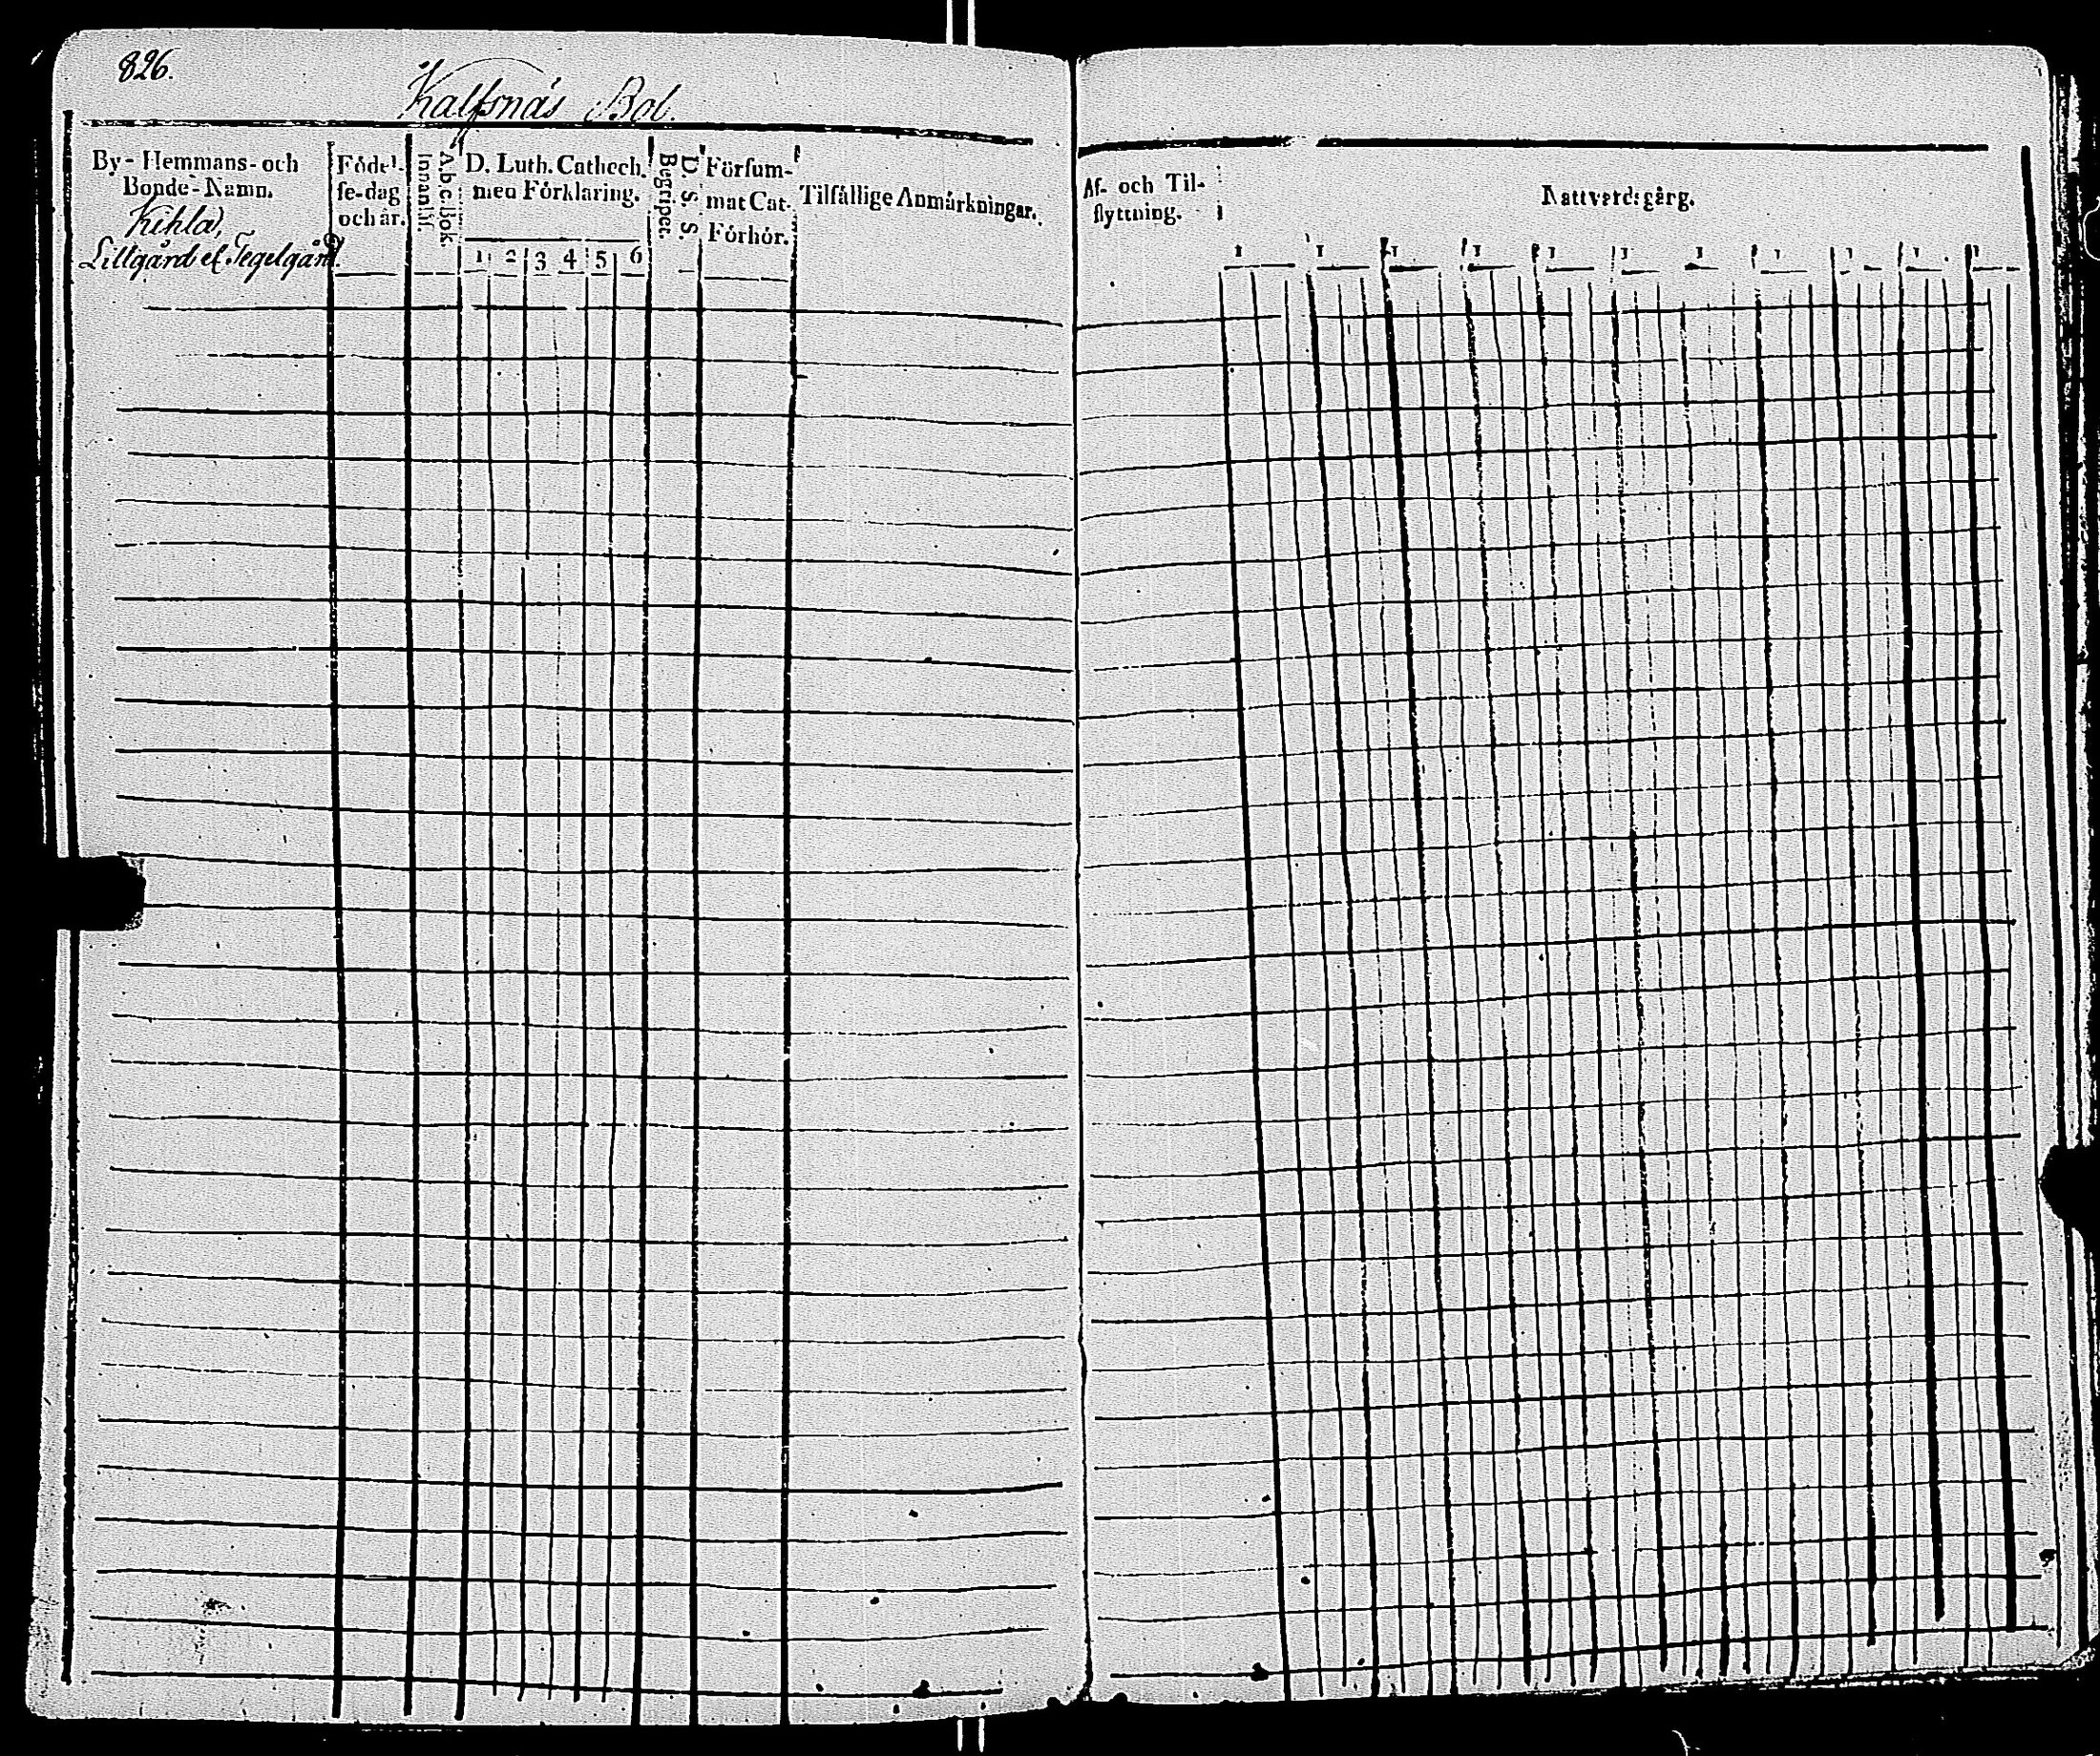 826.
Kalfsnäs Bol.
By- Hemmans- och
Bonde- Namn.
Kihla,
Lillgård el. Tegelgård.
Födel-
se-dag
och år.
A.b.c.bok.
Innanläs.
D. Luth. Cathech.
med Förklaring.
1 2 3 4 5 6
D. S. S. S.
Begripet.
Försum-
mat Cat.
Förhör.
Tilfällige Anmärkningar.
Af- och Til-
flyttning.
Nattvardsgång.
1 1 1 1 1 1 1 1 1 1 1